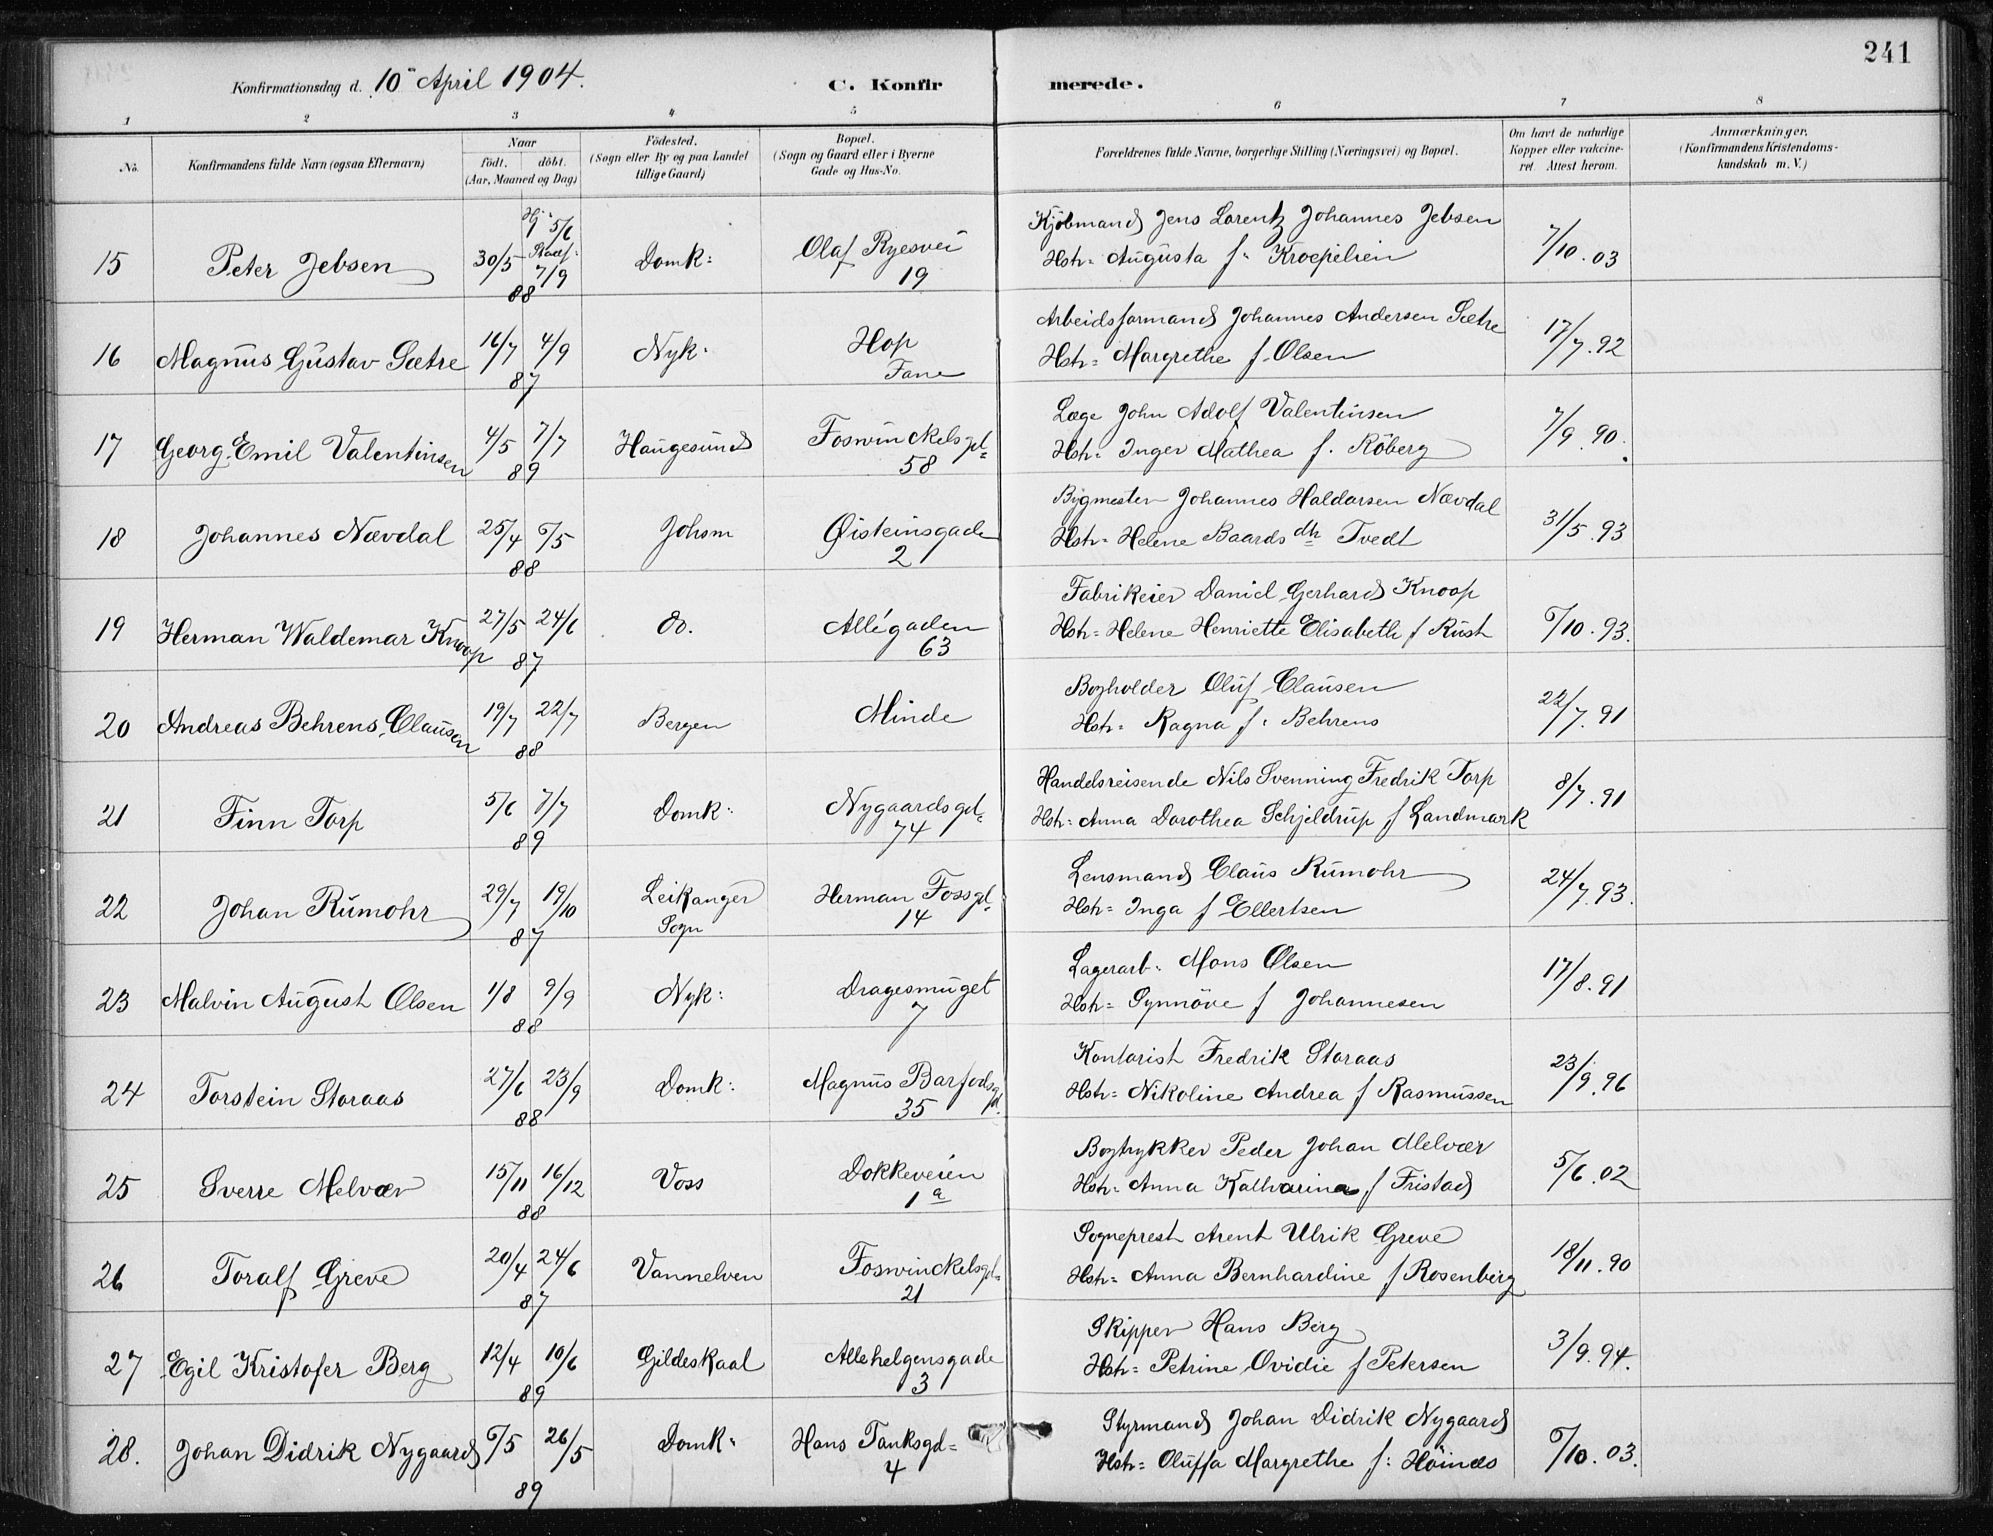 241
Konfirmationsdag d. 10 April 1904. C. Konfirmerede.
1 2 3 4 5 6 7 8
No. Konfirmandens fulde Navn (ogsaa Efternavn) Naar födt. döbt. (Aar, Maaned og Dag) Födested. (Sogn eller By og paa Landet tillige Gaard) Bopæl. (Sogn og Gaard eller i Byerne Gade og Hus-No. Forældrenes fulde Navne, borgerlige Stilling (Næringsvei) og Bopæl. Om havt de naturlige Kopper eller vakcineret. Attest herom. Anmærkninger. (Konfirmandens Kristendomskundskab m. V.)
15 Peter Jebsen 30/5 Hj. 5/6 Stadf: 7/9 88 Domk: Olaf Ryesvei 19 Kjöbmand Jens Lorentz Johannes Jebsen
Hstr= Augusta f. Kroepelien 7/10.03
16 Magnus Gustav Sætre 16/7 4/9 87 Nyk. Hop Fane Arbeidsformand Johannes Andersen Sætre
Hstr= Margrethe f. Olsen 17/7.92
17 Georg Emil Valentinsen 4/5 7/7 89 Haugesund Foswinckelsgd= 58 Læge John Adolf Valentinsen
Hstr= Inger Mathea f. Röberg 7/9.90.
18 Johannes Nævdal 25/4 6/5 88 Johsm Øisteinsgade 2 Bygmester Johannes Haldorsen Nævdal
Hstr= Helene Baardsdtr Tvedt 31/5.93
19 Herman Waldemar Knoop 27/5 24/6 87 do. Allégaden 63 Fabrikeier Daniel Gerhard Knoop
Hstr= Helene Henriette Elisabeth f Rust 6/10.93.
20 Andreas Behrens Clausen 19/7 22/7 88 Bergen Minde Bogholder Oluf Clausen
Hstr= Ragna f: Behrens 22/7.91
21 Finn Torp 5/6 7/7 89 Domk: Nygaardsgd= 74 Handelsreisende Nils Svenning Fredrik Torp
Hstr= Anna Dorothea Schjeldrup f Landmark 8/7.91
22 Johan Rumohr 29/7 19/10 87 Leikanger Sogn Herman Fossgd= 14 Lensmand Claus Rumohr
Hstr= Inga f Ellertsen 24/7.93.
23 Malvin August Olsen 1/8 9/9 88 Nyk: Dragesmuget 7 Lagerarb. Mons Olsen
Hstr= Synnöve f Johannesen 17/8.91
24 Torstein Storaas 27/6 23/9 88 Domk: Magnus Barfodsgd. 35 Kontorist Fredrik Storaas
Hstr= Nikoline Andrea f Rasmussen 23/9.96
25 Sverre Melvær 15/11 16/12 88 Voss Dokkeveien 1a Bogtrykker Peder Johan Melvær
Hstr= Anna Katharina f Fristad 5/6.02
26 Toralf Greve 20/4 24/6 87 Vannelven Foswinckelsgd= 21 Sogneprest Arent Ulrik Greve
Hstr= Anna Bernhardine f Rosenberg 18/11.90
27 Egil Kristofer Berg 12/4 10/6 89 Gildeskaal Allehelgensgade 3 Skipper Hans Berg
Hstr= Petrine Ovidie f Petersen 3/9.94.
28. Johan Didrik Nygaard 6/5 26/5 89 Domk. Hans Tanksgd= 4 Styrmand Johan Didrik Nygaard
Hstr= Oluffa Margrethe f: Höines 6/10.03.